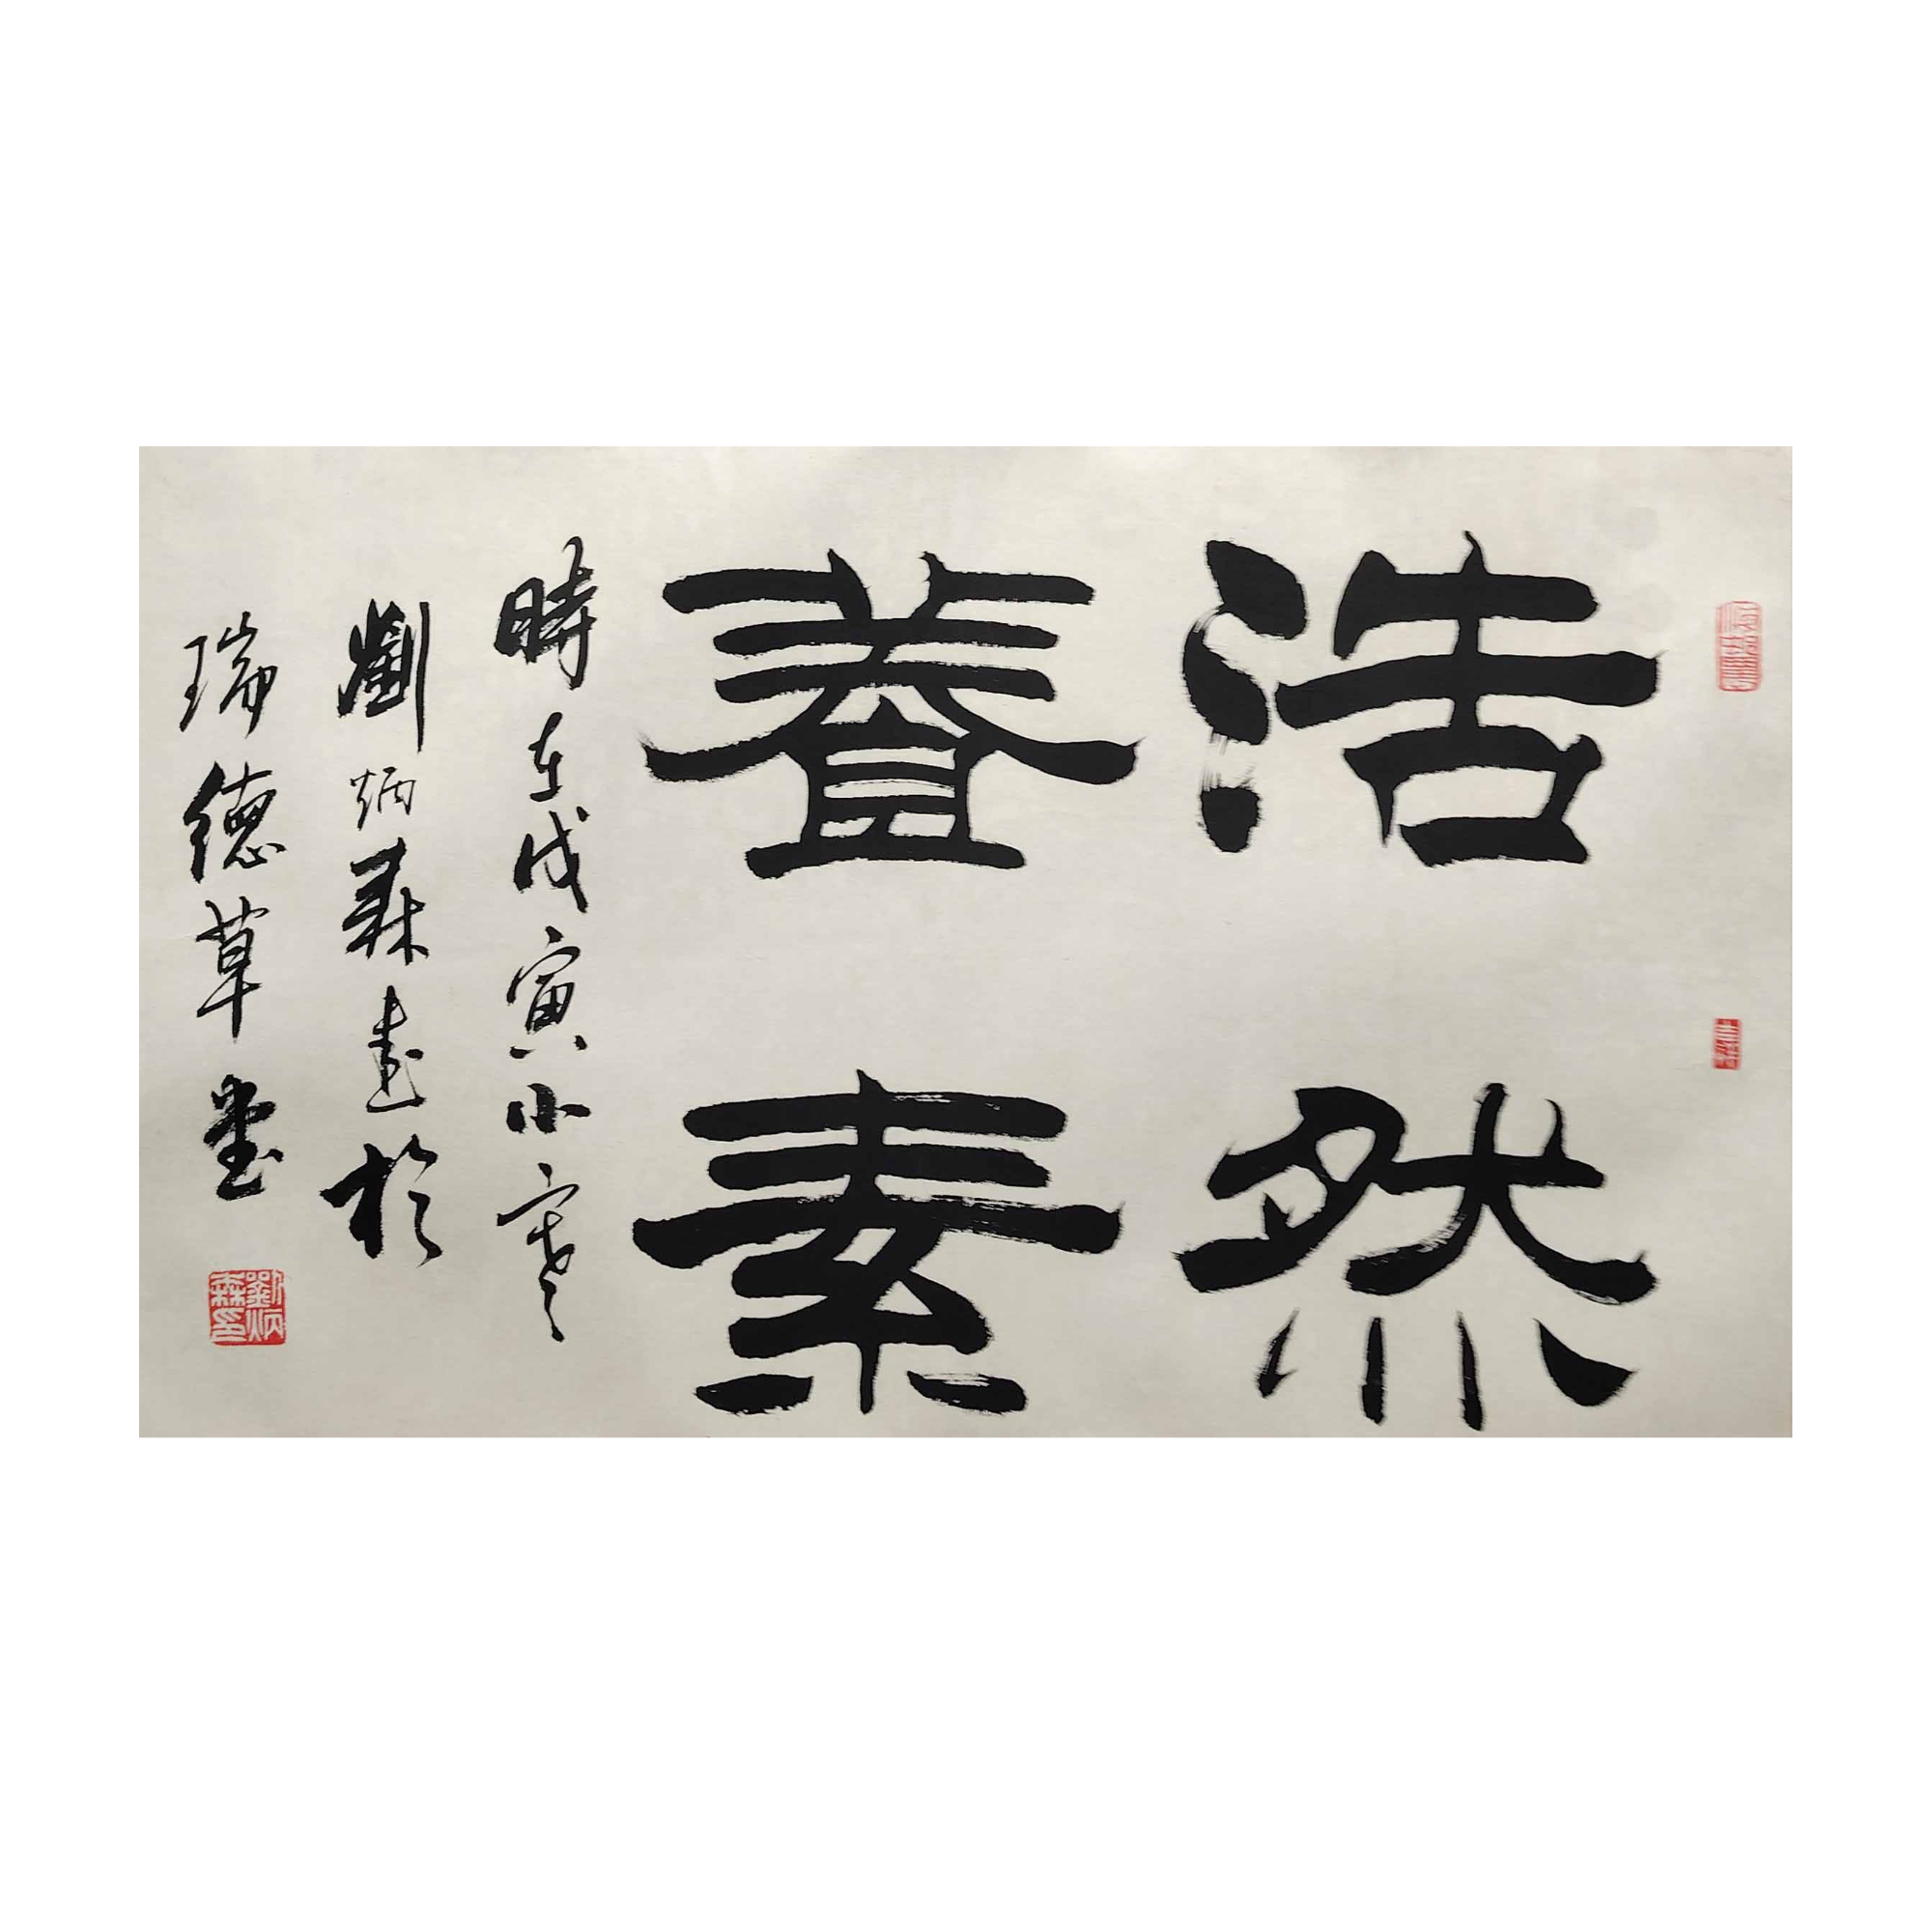 浩然
養素
時在戊寅小寒
劉炳森書於
瑞德草堂
劉炳森印